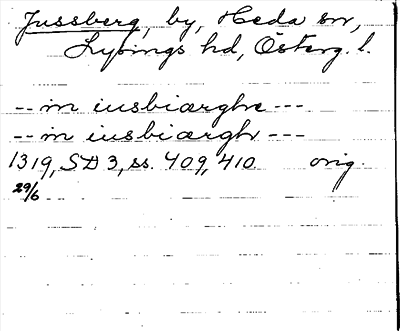 Jussberg, by, Heda sn,
Lysings hd, Österg. l.
-- in iusbiærghe ---
-- in iusbiærgh ---
1319, SD 3, ss. 409, 410 orig.
29/6